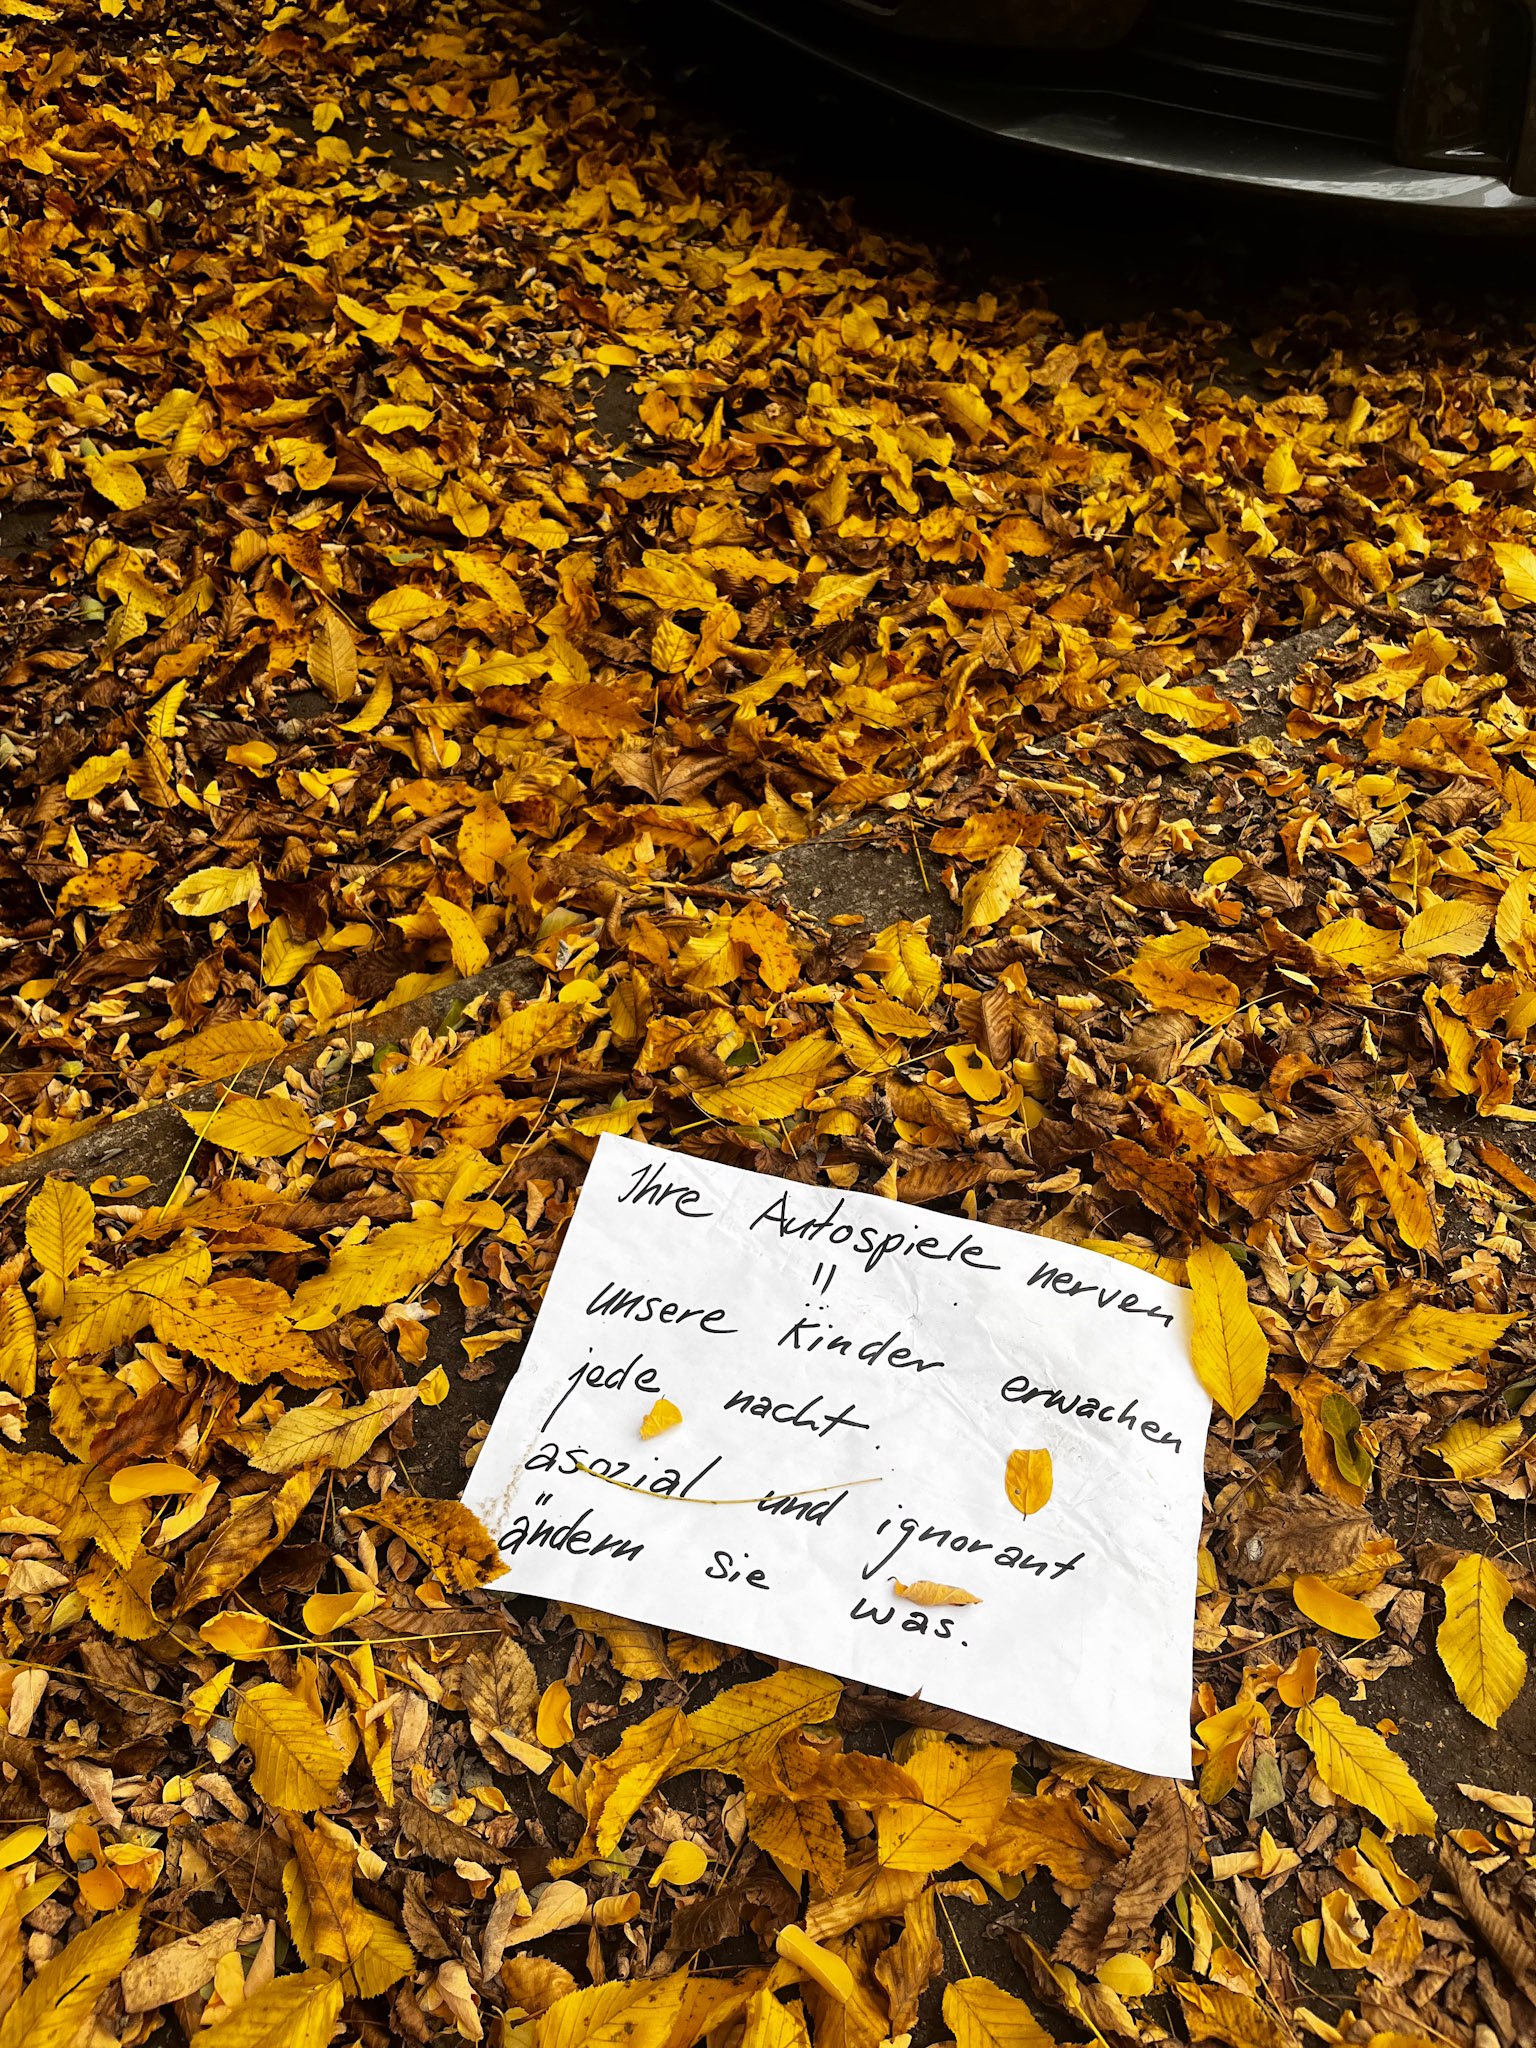 Ihre Autospiele nerven
!!
unsere Kinder erwachen
jede nacht.
asozial und ignorant
ändern sie was.